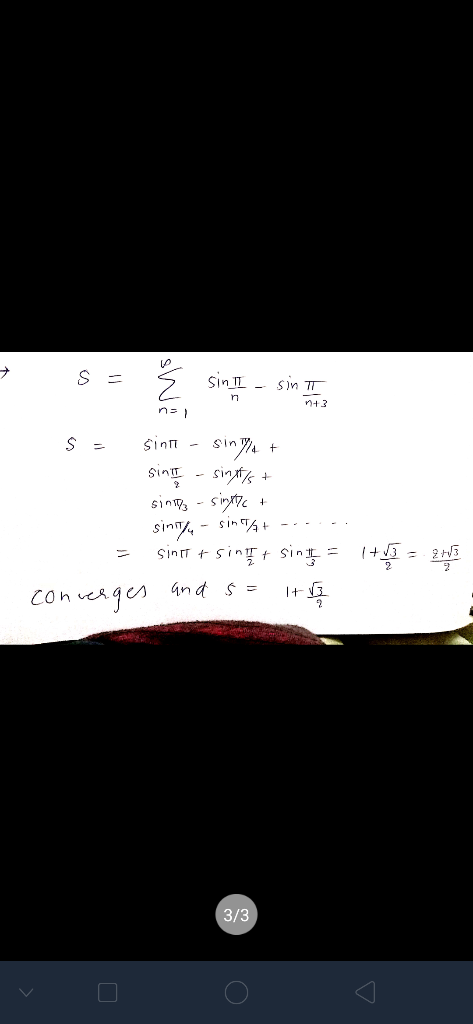 → S = ∞ Σ n=1 sin π/n − sin π/n+3
S = sinπ − sin π/4 +
sin π/2 − sin π/5 +
sin π/3 − sin π/6 +
sin π/4 − sin π/7 + - - - - - -
= sinπ + sin π/2 + sin π/3 = 1 + √3/2 = 2+√3/2
converges and s = 1+ √3/2
3/3